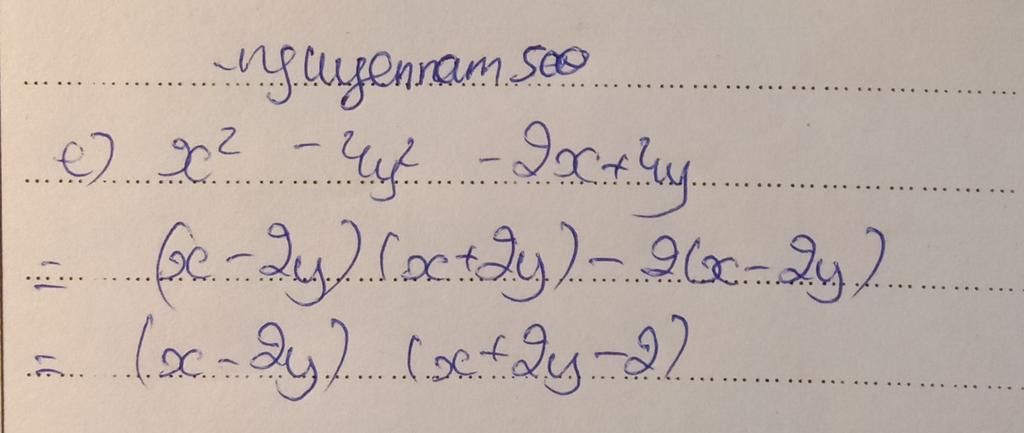 nguyennam500
e) x² - 4y² - 2x + 4y
= (x - 2y) (x + 2y) - 2(x - 2y)
= (x - 2y) (x + 2y - 2)